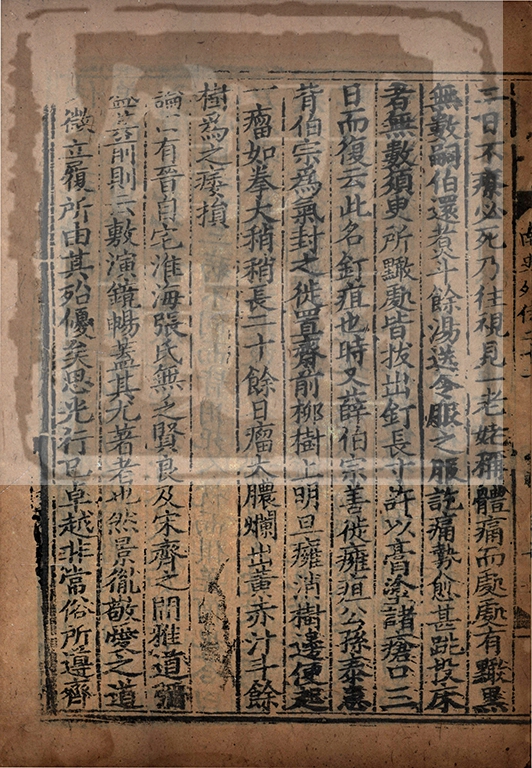 三日不療必死乃往視見一老姥稱體痛而處處有黶黑
無數嗣伯還煮斗餘湯送令服之服訖痛勢愈甚跳投床
者無數須臾所黶處皆拔出釘長寸許以膏塗諸瘡口三
日而復云此名釘疽也時又薛伯宗善徙癰疽公孫泰患
背伯宗爲氣封之徙置齋前柳樹上明旦癰消樹邊便起
一瘤如拳大稍稍長二十餘日瘤大膿爛出黃赤汁斗餘
樹爲之痿損
論曰有晉自宅淮海張氏無乏賢良及宋齊之間雅道彌
盛其前則云敷演鏡暢蓋其尤著者也然景胤敬愛之道
微立履所由其殆優矣思光行己卓越非常俗所遵齊
南史列傳二十二